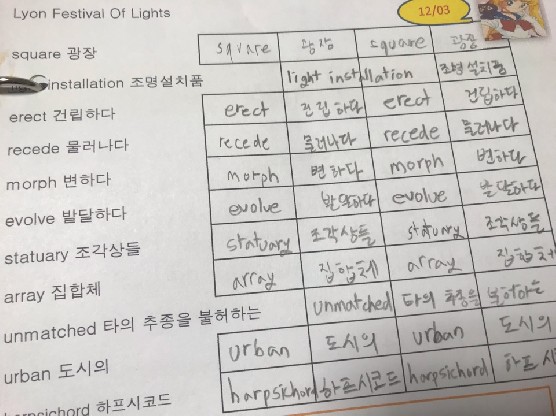 Lyon Festival Of Lights
12/03
square 광장 square 광장 square 광장
installation 조명설치품 light installation 조명설치품
erect 건립하다 erect 건립하다 erect 건립하다
recede 물러나다 recede 물러나다 recede 물러나다
morph 변하다 morph 변하다 morph 변하다
evolve 발달하다 evolve 발달하다 evolve 발달하다
statuary 조각상들 statuary 조각상들 statuary 조각상들
array 집합체 array 집합체 array 집합체
unmatched 타의 추종을 불허하는 unmatched 타의 추종을 불허하는
urban 도시의 urban 도시의 urban 도시의
harpsichord 하프시코드 harpsichord 하프시코드 harpsichord 하프시